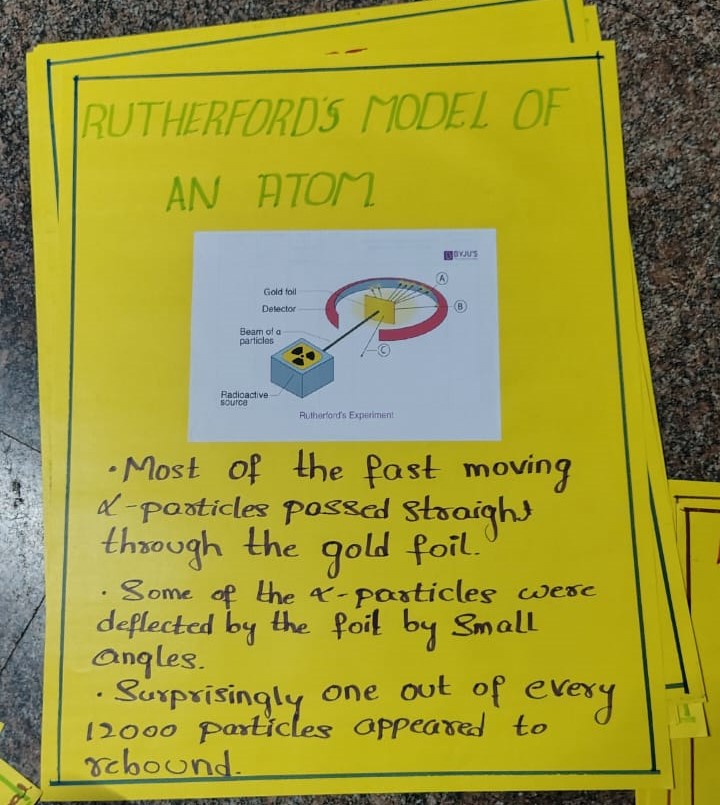 RUTHERFORD'S MODEL OF
AN ATOM
BYJU'S
A
Gold foil
B
Detector
Beam of α
particles
C
Radioactive
source
Rutherford's Experiment
• Most of the fast moving
α-particles passed straight
through the gold foil.
• Some of the α-particles were
deflected by the foil by Small
angles.
• Surprisingly one out of every
12000 particles appeared to
rebound.